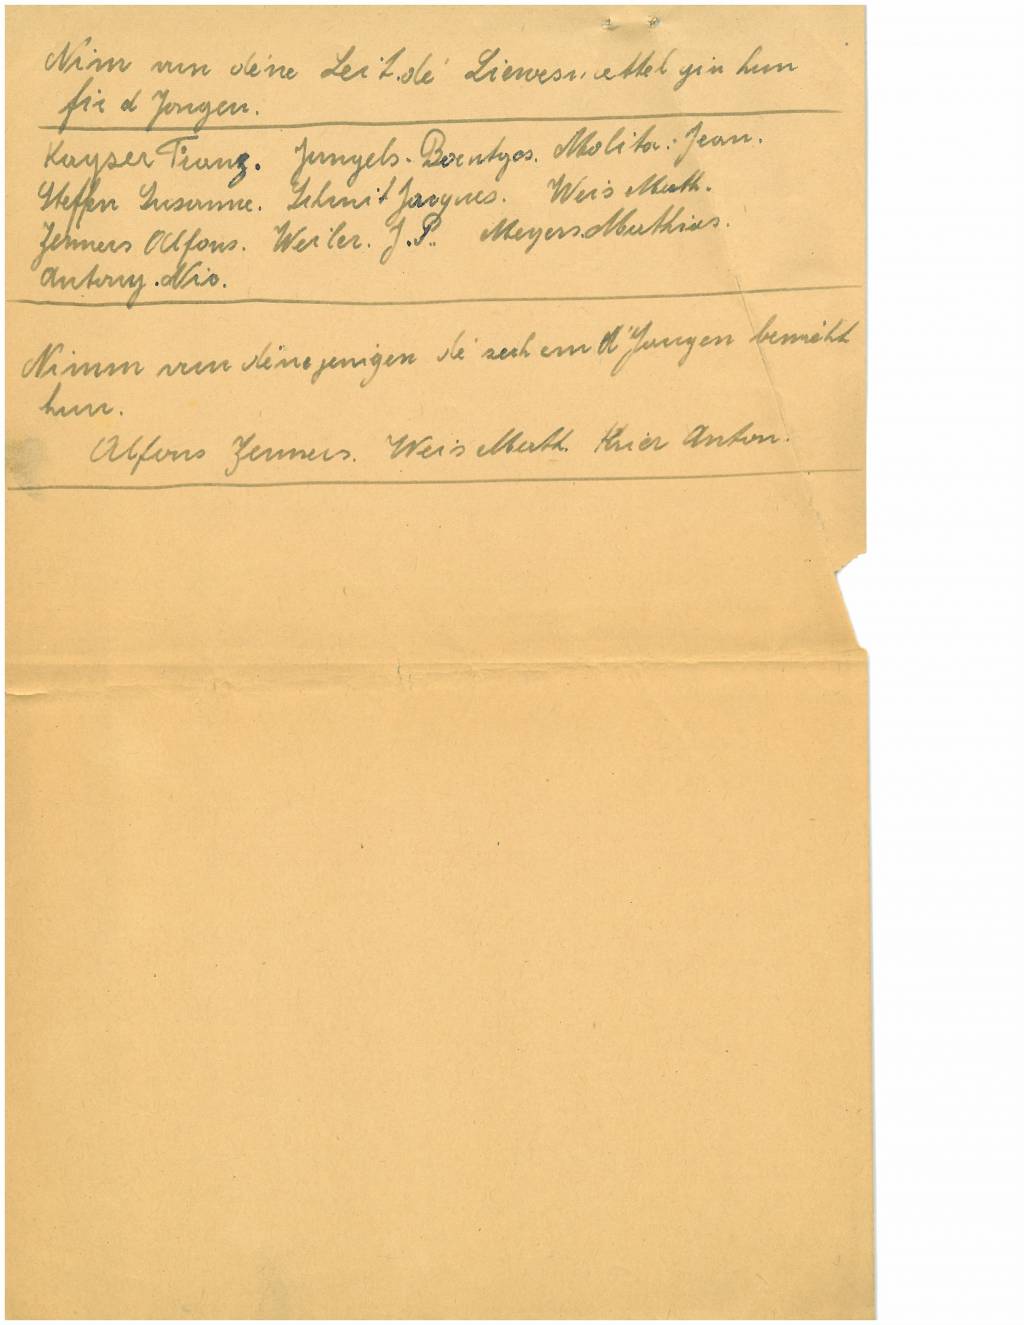 Nim vun déne Leit. dé Liewesmëttel gin hun
fir d Jongen.
Kayser Franz. Jungels. Molitor. Jean.
Steffen Susanne. Schmit Jacques. Weis Math.
Zenners Alfons. Weiler. J. P. Meyers. Mathias.
Antony. Nic.
Nimm vun dénejenigen dé sech em d'Jongen beméht
hun.
Alfons Zenners. Weis Math. Krier Anton.